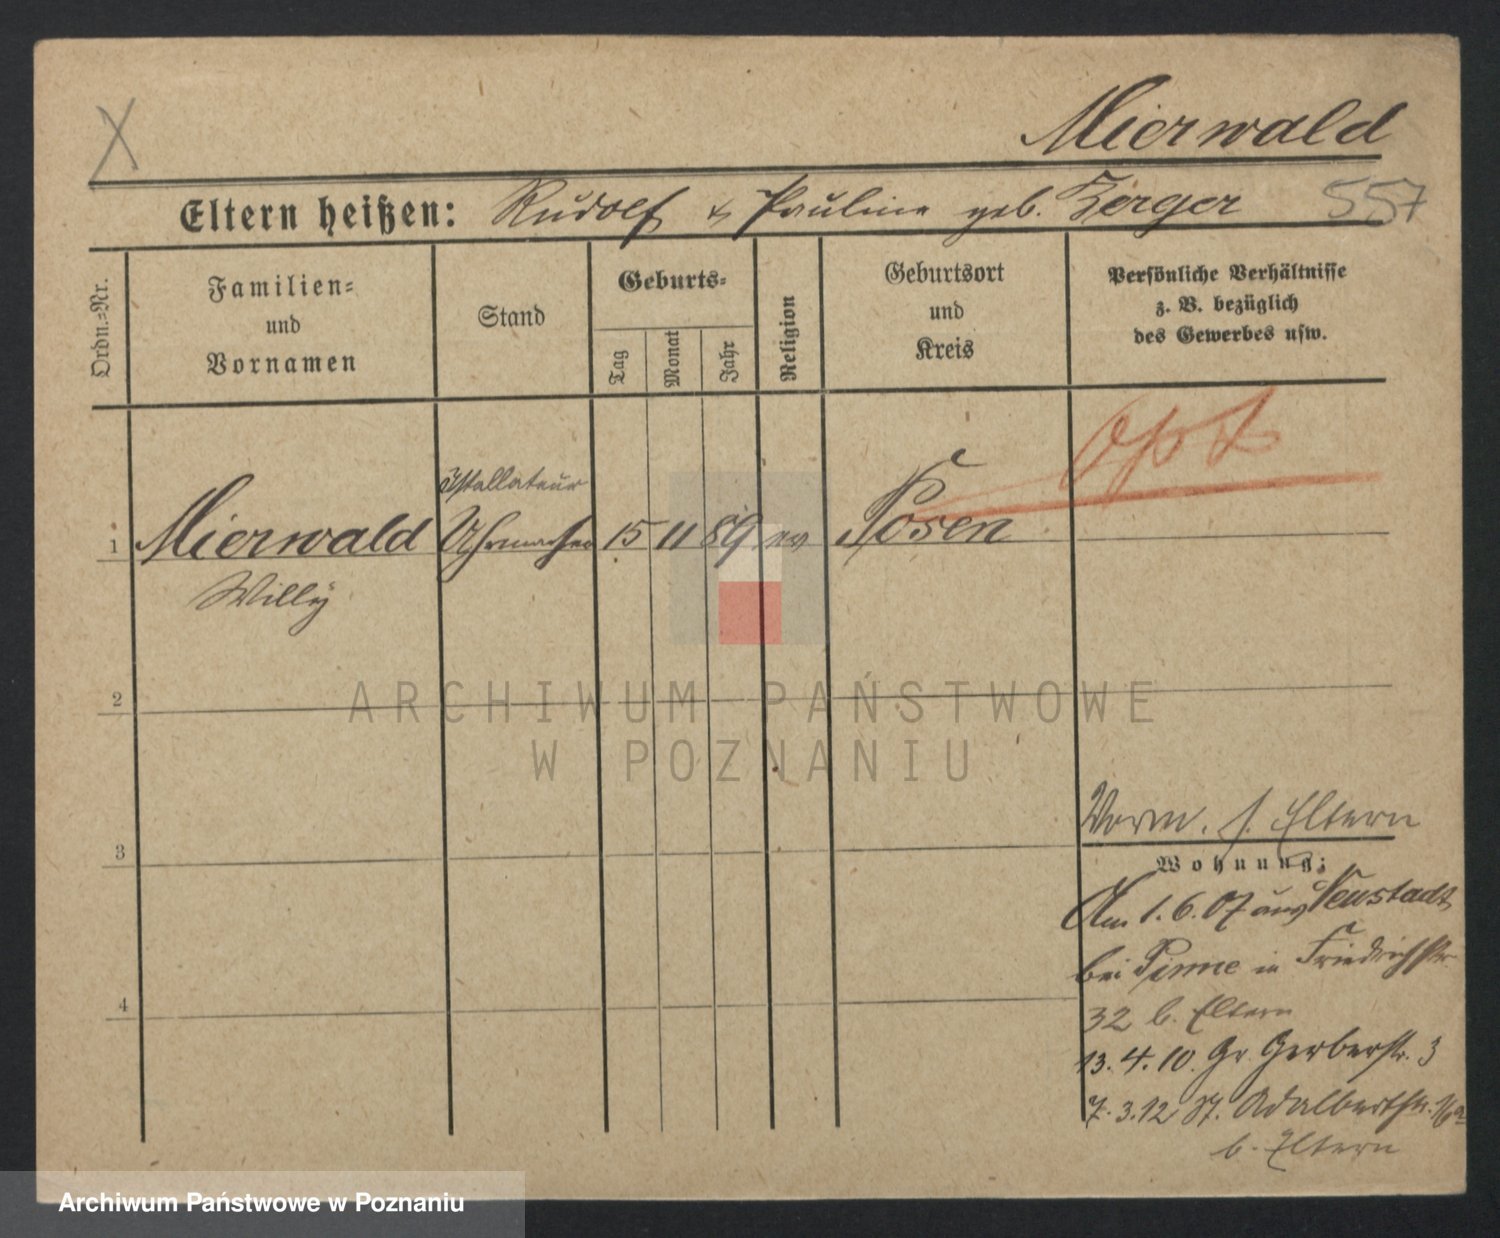 X
Mierwald
Eltern heißen: Rudolf & Pauline geb. Zerger 557
Ordn.=Nr.
Familien=
und
Vornamen
Stand
Geburts=
Tag
Monat
Jahr
Religion
Geburtsort
und
Kreis
Persönliche Verhältnisse
z. B. bezüglich
des Gewerbes usw.
Opt
Istallateur
1 Mierwald Uhrmacher 15 11 89 ev Posen
Willy
2
ARCHIWUM PAŃSTWOWE
W POZNANIU
3
4
Vorm. s. Eltern
Wohnung:
Am 1.6.07 aus Neustadt
bei Pinne in Friedrichstr
32 b. Eltern
13.4.10. Gr. Gerberstr. 3
7.3.12 St. Adalbertstr. 16a
b. Eltern
Archiwum Państwowe w Poznaniu